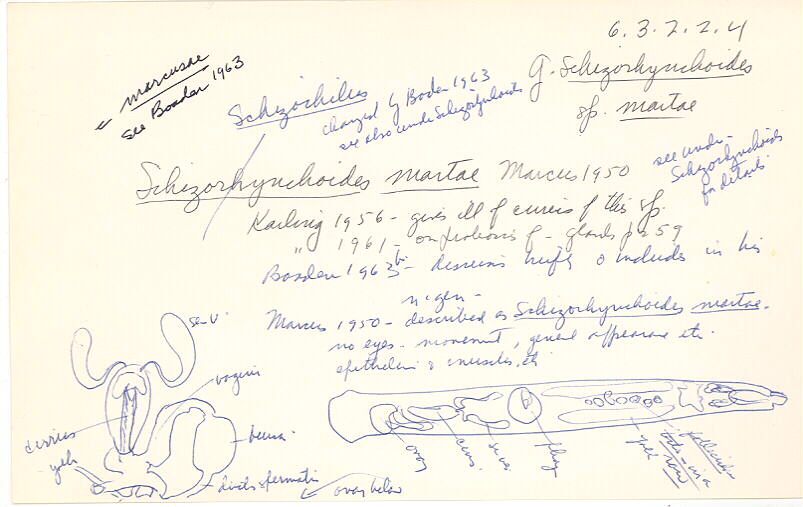 6.3.2.2.4
marcusae
see Boaden 1963
Schizochilus
changed by Boaden 1963
see also under Schizorhynchoides
G. Schizorhynchoides
sp. martae
Schizorhynchoides martae Marcus 1950
see under
Schizorhynchoides
for details
Karling 1956 - gives ill of cirrus of this sp.
" 1961 - on proboscis of - glands p 259
Boaden 1963b - discusses briefly & includes in his
n. gen -
Marcus 1950 - described as Schizorhynchoides martae.
no eyes - movement, general appearance etc.
epithelium & muscles, etc
se-v.
vagina
cirrus
yolk
bursa
ductus spermati
ovary below
ovary
cirrus.
se ves
phary
yolk
follicular
testes - in a
row